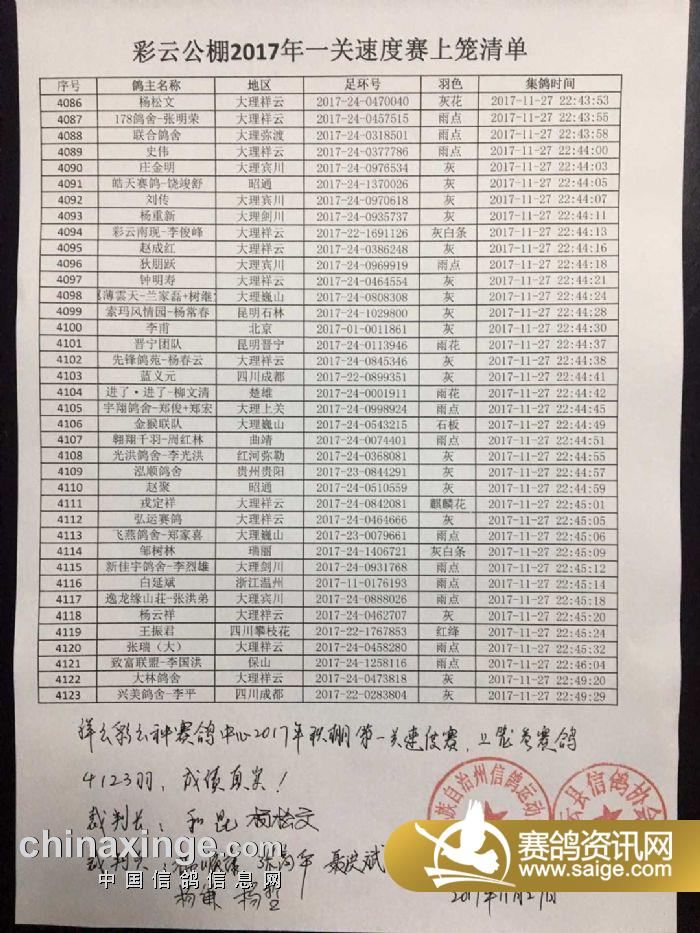 彩云公棚2017年一关速度赛上笼清单
序号 鸽主名称 地区 足环号 羽色 集鸽时间
4086 杨松文 大理祥云 2017-24-0470040 灰花 2017-11-27 22:43:53
4087 178鸽舍-张明荣 大理祥云 2017-24-0457515 雨点 2017-11-27 22:43:55
4088 联合鸽舍 大理弥渡 2017-24-0318501 雨点 2017-11-27 22:43:58
4089 史伟 大理祥云 2017-24-0377786 雨点 2017-11-27 22:44:00
4090 庄金明 大理宾川 2017-24-0976534 灰 2017-11-27 22:44:03
4091 皓天赛鸽-饶竣舒 昭通 2017-24-1370026 灰 2017-11-27 22:44:05
4092 刘传 大理宾川 2017-24-0970618 灰 2017-11-27 22:44:07
4093 杨重新 大理剑川 2017-24-0935737 灰 2017-11-27 22:44:11
4094 彩云南现-李俊峰 大理祥云 2017-22-1691126 灰白条 2017-11-27 22:44:13
4095 赵成红 大理祥云 2017-24-0386248 灰 2017-11-27 22:44:16
4096 狄朋跃 大理宾川 2017-24-0969919 雨点 2017-11-27 22:44:18
4097 钟明寿 大理祥云 2017-24-0464554 灰 2017-11-27 22:44:21
4098 薄雲天-兰家磊+树雄 大理巍山 2017-24-0808308 灰 2017-11-27 22:44:24
4099 索玛风情园-杨常春 昆明石林 2017-24-1029800 灰 2017-11-27 22:44:28
4100 李甫 北京 2017-01-0011861 灰 2017-11-27 22:44:30
4101 晋宁团队 昆明晋宁 2017-24-0113946 雨花 2017-11-27 22:44:37
4102 先锋鸽苑-杨春云 大理祥云 2017-24-0845346 灰 2017-11-27 22:44:38
4103 蓝义元 四川成都 2017-22-0899351 灰 2017-11-27 22:44:41
4104 进了·进了-柳文清 楚雄 2017-24-0001911 雨花 2017-11-27 22:44:42
4105 宇翔鸽舍-郑俊+郑宏 大理上关 2017-24-0998924 雨点 2017-11-27 22:44:45
4106 金猴联队 大理巍山 2017-24-0543215 石板 2017-11-27 22:44:49
4107 翱翔千羽-周红林 曲靖 2017-24-0074401 雨点 2017-11-27 22:44:51
4108 光洪鸽舍-李光洪 红河弥勒 2017-24-0368081 灰 2017-11-27 22:44:55
4109 泓顺鸽舍 贵州贵阳 2017-23-0844291 灰 2017-11-27 22:44:57
4110 赵聚 昭通 2017-24-0510559 灰 2017-11-27 22:44:59
4111 戎定祥 大理祥云 2017-24-0842081 麒麟花 2017-11-27 22:45:01
4112 弘运赛鸽 大理祥云 2017-24-0464666 灰 2017-11-27 22:45:05
4113 飞燕鸽舍-郑家喜 大理巍山 2017-23-0079661 雨点 2017-11-27 22:45:06
4114 邹树林 瑞丽 2017-24-1406721 灰白条 2017-11-27 22:45:09
4115 新佳宇鸽舍-李烈雄 大理剑川 2017-24-0931768 雨点 2017-11-27 22:45:12
4116 白延斌 浙江温州 2017-11-0176193 雨点 2017-11-27 22:45:14
4117 逸龙缘山荘-张洪弟 大理宾川 2017-24-0888026 雨点 2017-11-27 22:45:18
4118 杨云祥 大理祥云 2017-24-0462707 灰 2017-11-27 22:45:20
4119 王振君 四川攀枝花 2017-22-1767853 红绛 2017-11-27 22:45:24
4120 张瑞（大） 大理祥云 2017-24-0458280 雨点 2017-11-27 22:45:32
4121 致富联盟-李国洪 保山 2017-24-1258116 雨点 2017-11-27 22:46:04
4122 大林鸽舍 大理祥云 2017-24-0473818 灰 2017-11-27 22:49:20
4123 兴美鸽舍-李平 四川成都 2017-22-0283804 灰 2017-11-27 22:49:29
祥云彩云种赛鸽中心2017年秋棚第一关速度赛，上笼参赛鸽
4123羽，成绩真实！
裁判长：和昆 杨松文
裁判员： 聂洪斌
2017年11月27日
族自治州信鸽运动
云县信鸽协会
chinaxinge.com
中国信鸽信息网
赛鸽资讯网
www.saige.com